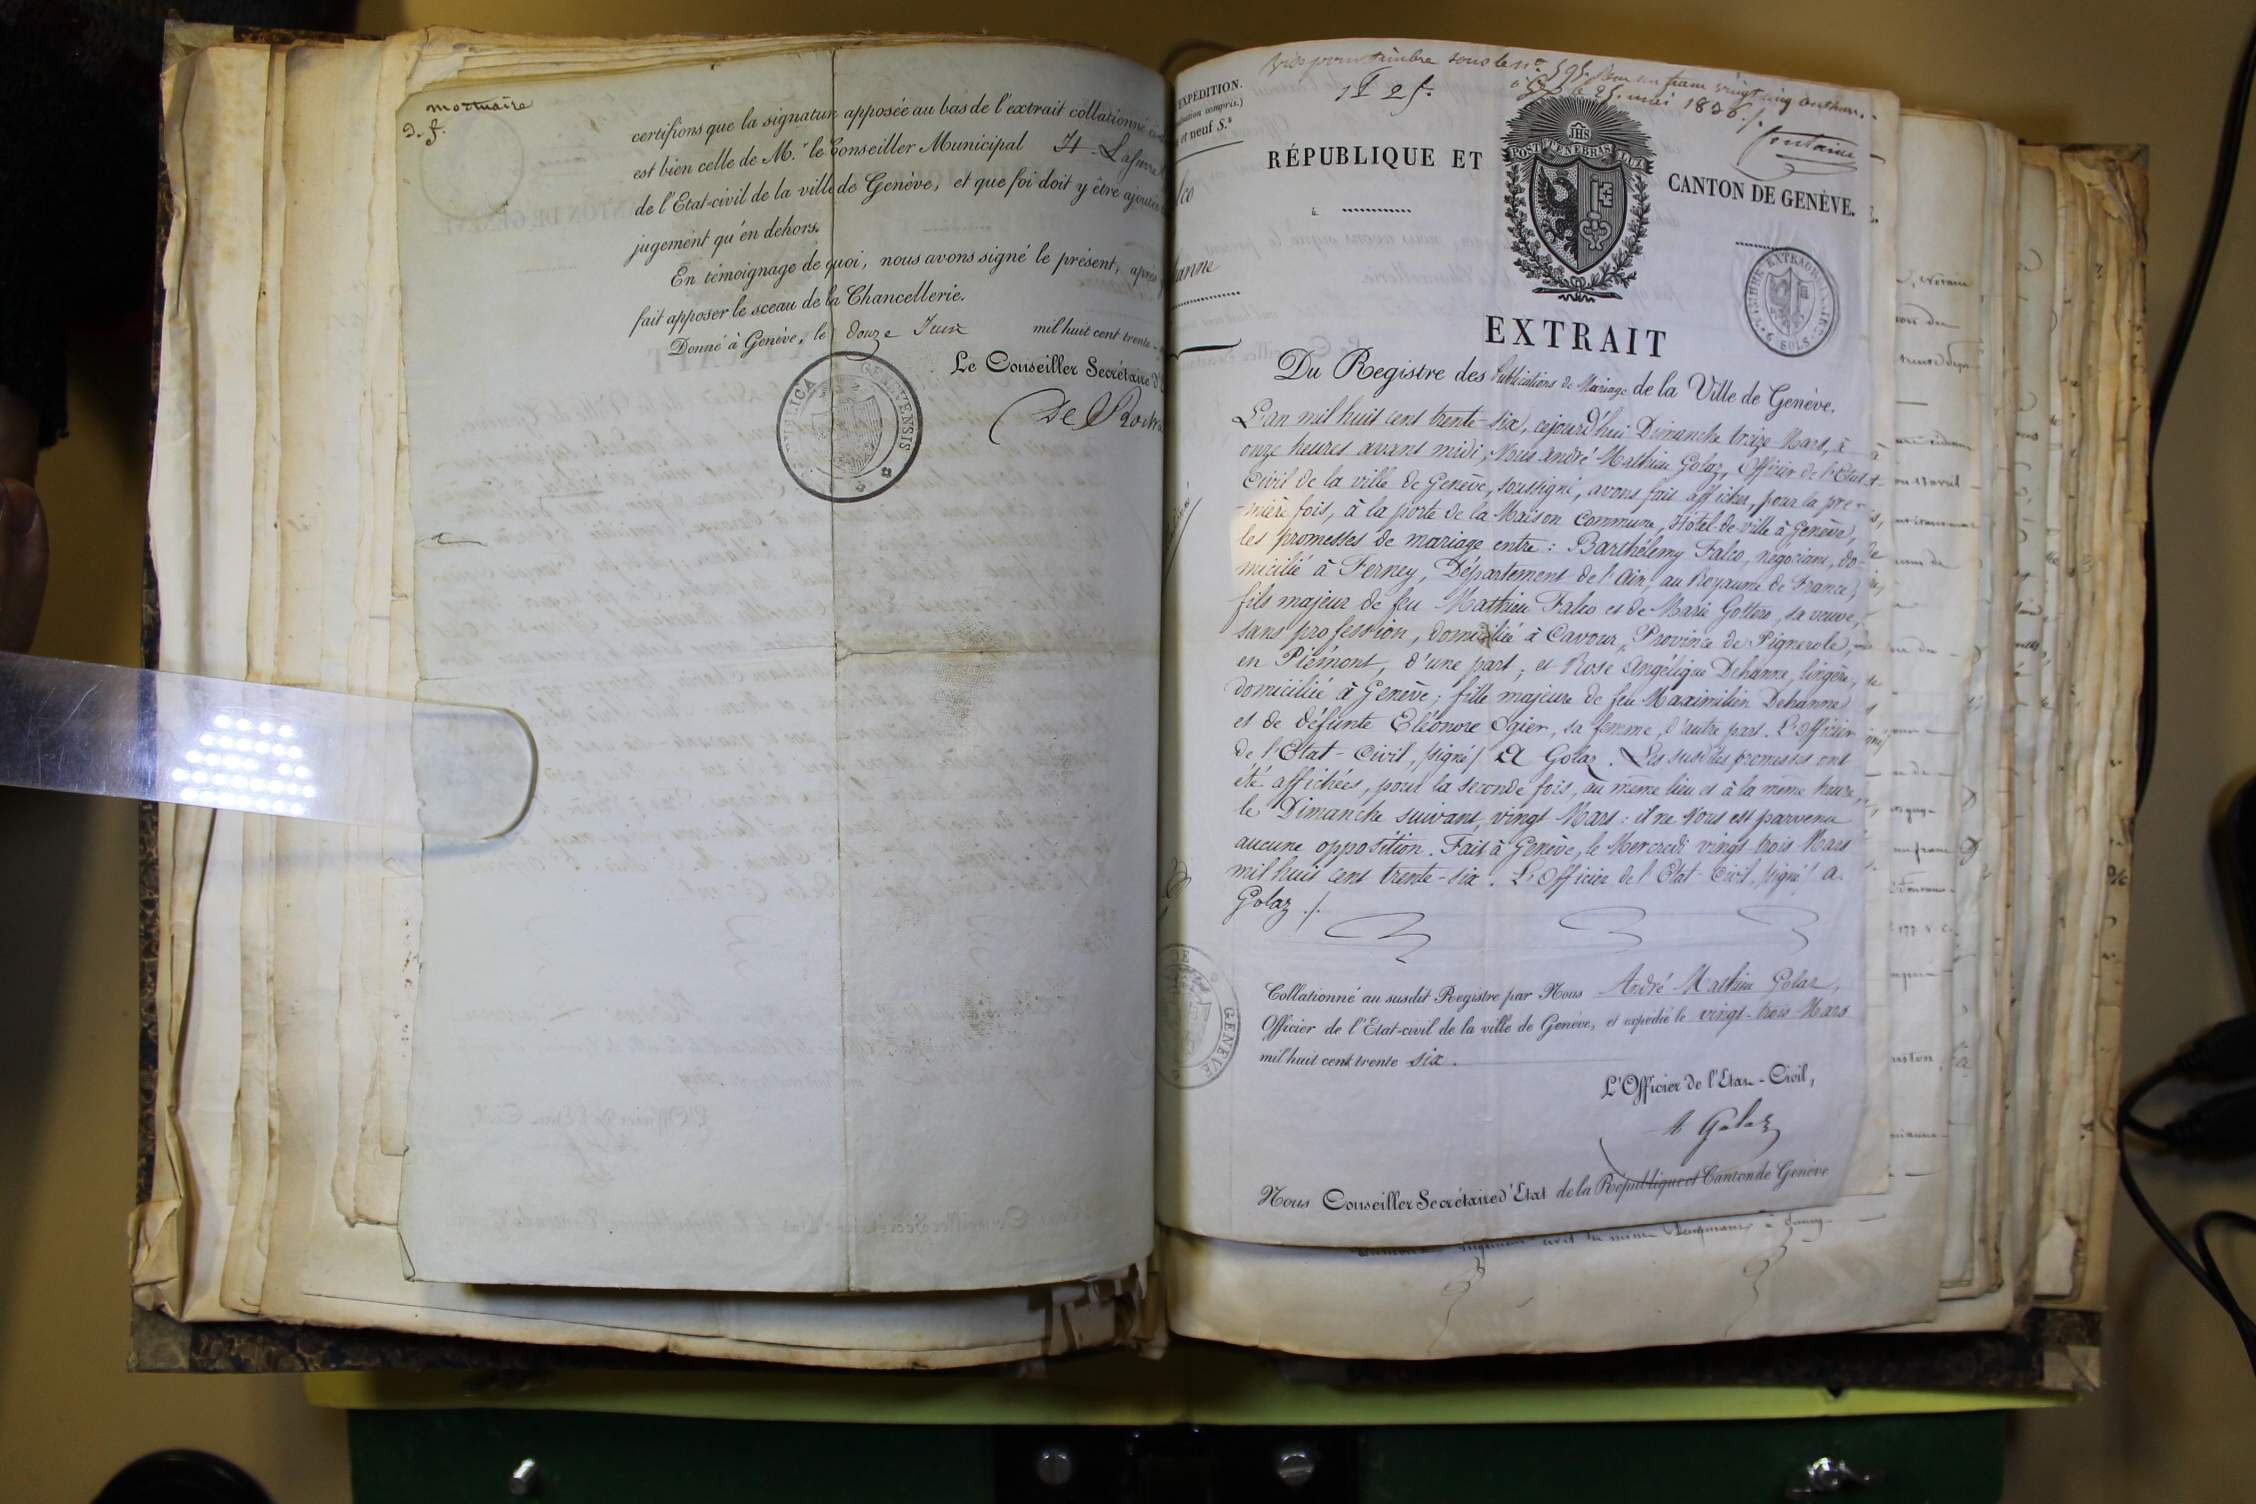 mortuaire
d. f.
certifions que la signature apposée au bas de l'extrait collationné
est bien celle de M.r le Conseiller Municipal
de l'Etat-civil de la ville de Genève, et que foi doit y être ajoutée
jugement qu'en dehors.
En témoignage de quoi, nous avons signé le présent, après
fait apposer le sceau de la Chancellerie.
Donné à Genève, le douze Juin mil huit cent trente-
Le Conseiller Secrétaire d'
De
GENEVENSIS
EXPÉDITION.
compris.)
et neuf S.s
lco
hanne
timbre sous le n.o
1 F 25.
le 25. mai 1836.
Fontaine
JHS
POST TENEBRAS LUX
RÉPUBLIQUE ET CANTON DE GENÈVE.
TIMBRE EXTRAORDINAIRE
9 SOLS
EXTRAIT
Du Registre des Publications de Mariage de la Ville de Genève.
L'an mil huit cent trente-six, cejourd'hui Dimanche treize Mars, à
onze heures avant midi, Nous André Mathieu Golaz, Officier de l'Etat-
Civil de la ville de Genève, soussigné, avons fait afficher, pour la pre-
-mière fois, à la porte de la Maison commune, Hôtel-de-ville à Genève,
les promesses de mariage entre : Barthélemy Falco, négociant, do-
micilié à Ferney, Département de l'Ain au Royaume de France,
fils majeur de feu Mathieu Falco et de Marie Gottero, sa veuve,
sans profession, domiciliée à Cavour, Province de Pignerole,
en Piémont, d'une part ; et Rose Angélique Dehanne, lingère,
domiciliée à Genève ; fille majeure de feu Maximilien Dehanne
et de défunte Eléonore Ogier, sa femme, d'autre part. L'Officier
de l'Etat-Civil, signé / A Golaz. Les susdites promesses ont
été affichées, pour la seconde fois, au même lieu et à la même heure,
le Dimanche suivant, vingt Mars : il ne Nous est parvenu
aucune opposition. Fait à Genève, le Mercredi vingt-trois Mars
mil huit cent trente-six. L'Officier de l'Etat-Civil, signé / A.
Golaz ./.
Collationné au susdit Registre par Nous André Mathieu Golaz,
Officier de l'Etat-civil de la ville de Genève, et expédié le vingt-trois Mars
mil huit cent trente six.
GENÈVE
L'Officier de l'Etat-Civil,
A Golaz
Nous Conseiller Secrétaire d'Etat de la République et Canton de Genève